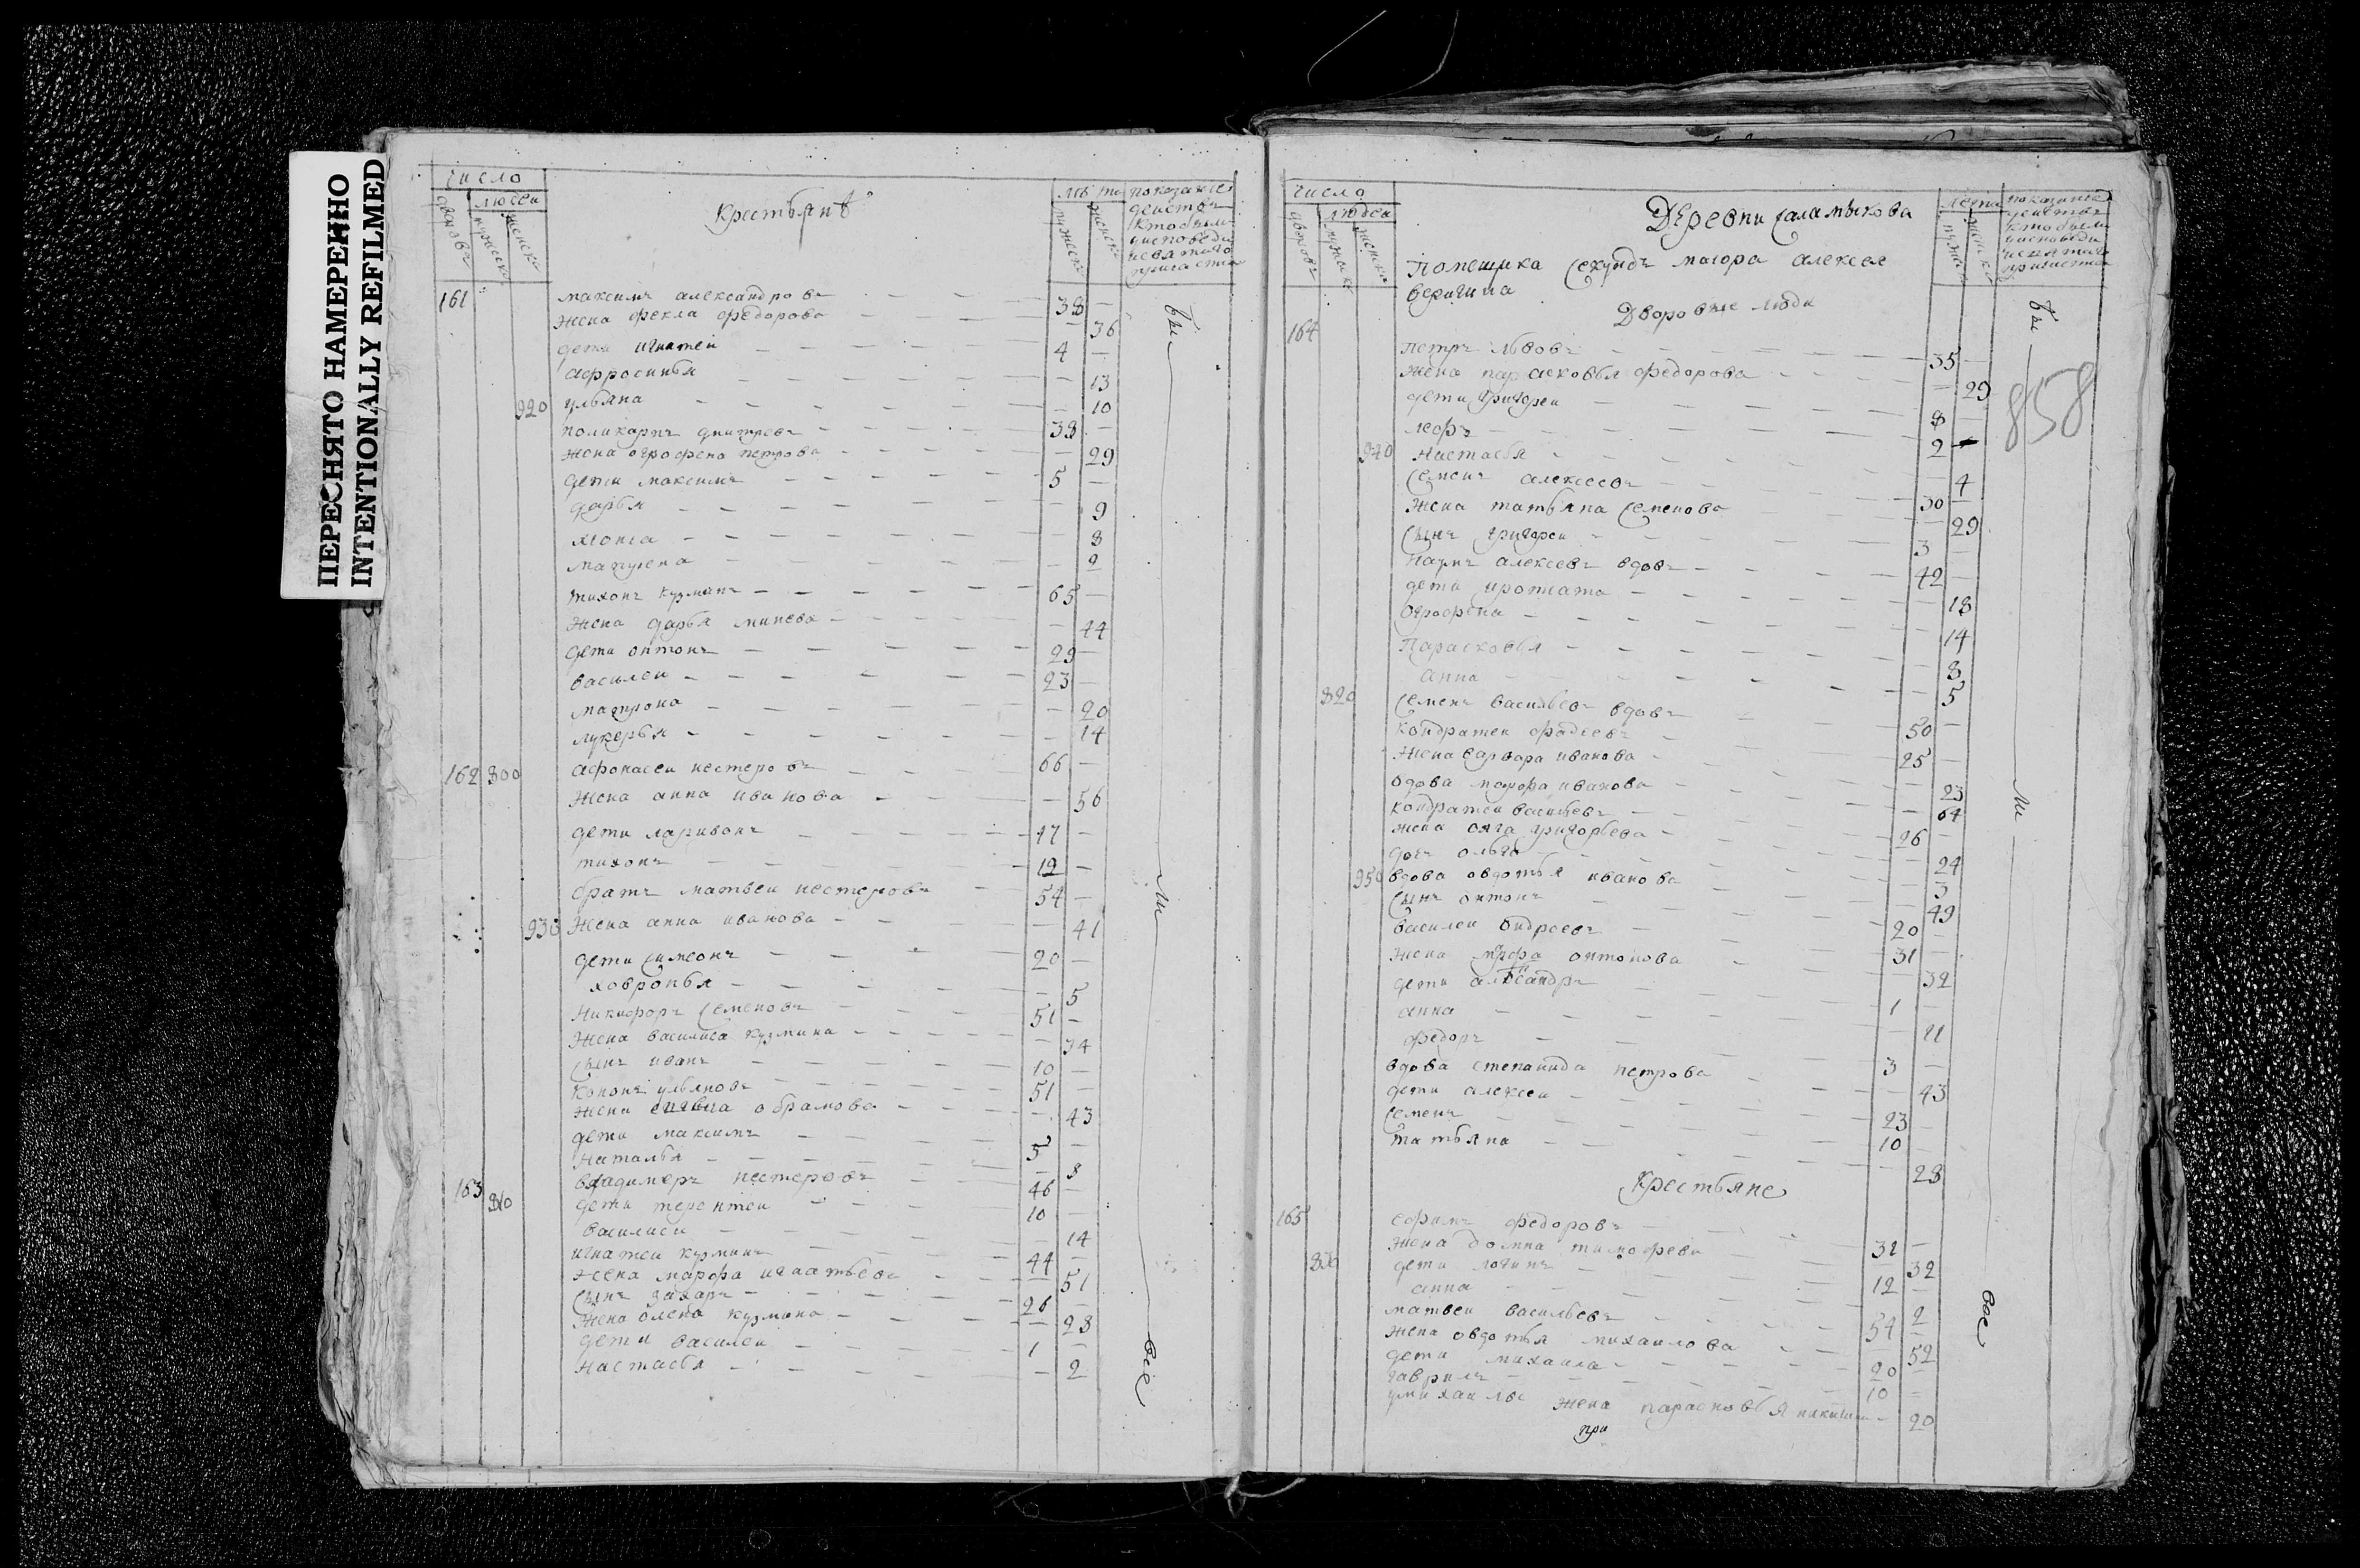 ПЕРЕСНЯТО НАМЕРЕННО
INTENTIONALLY REFILMED
число
людеи
крестьянъ
лѣта
показание
161 максимъ александровъ 38
жена фекла федорова 36
дети игнатеи 4
афросинья 13
920 ульяна 10
поликарпъ дмитревъ 38
жена огрофена петрова 29
дети максимъ 5
дарья 9
8
2
тихонъ кузминъ 65
жена дарья минева 44
дети онтонъ 29
василеи 23
матрона 20
лукерья 14
162 800 афонасеи нестеровъ 66
жена анна иванова 56
дети ларивонъ 17
тихонъ 12
братъ матвеи нестеровъ 54
930 жена анна иванова 41
дети симеонъ 20
ховронья 5
никифоръ семеновъ 51
жена василиса кузмина 34
сынъ иванъ 10
кононъ ульяновъ 51
жена обрамова 43
дети максимъ 5
наталья 8
163 810 владимеръ нестеровъ 46
дети терентеи 10
василиса 14
игнатеи кузминъ 44
жена марфа игнатьева 51
сынъ захаръ 26
жена олена кузмина 28
дети василеи 1
настасья 2
бы
ли
все
число
людеи
Деревни саламыкова
лѣта
показание
помещика секундъ маиора алексея
веригина
Дворовые люди
858
164 петръ львовъ 35
жена парасковья федорова 29
дети григореи 8
2
940 настасья 4
семенъ алексеевъ 30
жена татьяна семенова 29
сынъ григореи 3
наумъ алексевъ вдовъ 42
дети 18
огрофена 14
парасковья 8
анна 5
820 семенъ васильевъ вдовъ 50
кондратеи фадеевъ 25
жена варвара иванова 23
вдова марфа иванова 64
кондратеи васильевъ 26
жена григорьева 24
дочь ольга 3
950 вдова овдотья иванова 49
сынъ онтонъ 20
василеи ондреевъ 31
жена марфа онтонова 32
дети александръ 1
анна 11
федоръ 3
вдова степанида петрова 43
дети алексеи 23
семенъ 10
татьяна 28
крестьяне
165 ефимъ федоровъ 31
жена домна тимофеева 32
830 дети логинъ 12
анна 2
матвеи васильевъ 54
жена овдотья михаилова 52
дети михаила 20
гаврилъ 10
умихаилы жена парасковья никитина 20
при
бы
ли
все